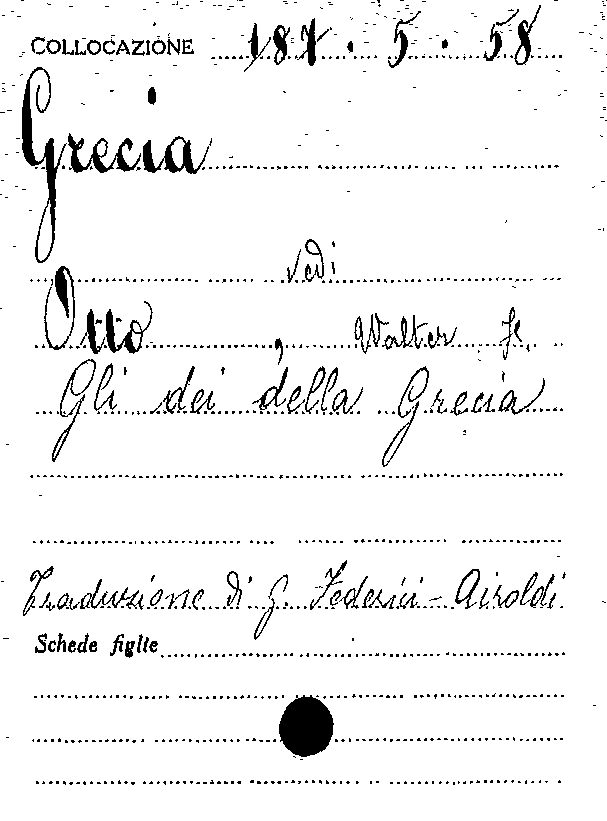 COLLOCAZIONE 187.5.58
Grecia
vedi
Otto, Walter F.
Gli dei della Grecia
Traduzione di G. Federici-Airoldi
Schede figlie